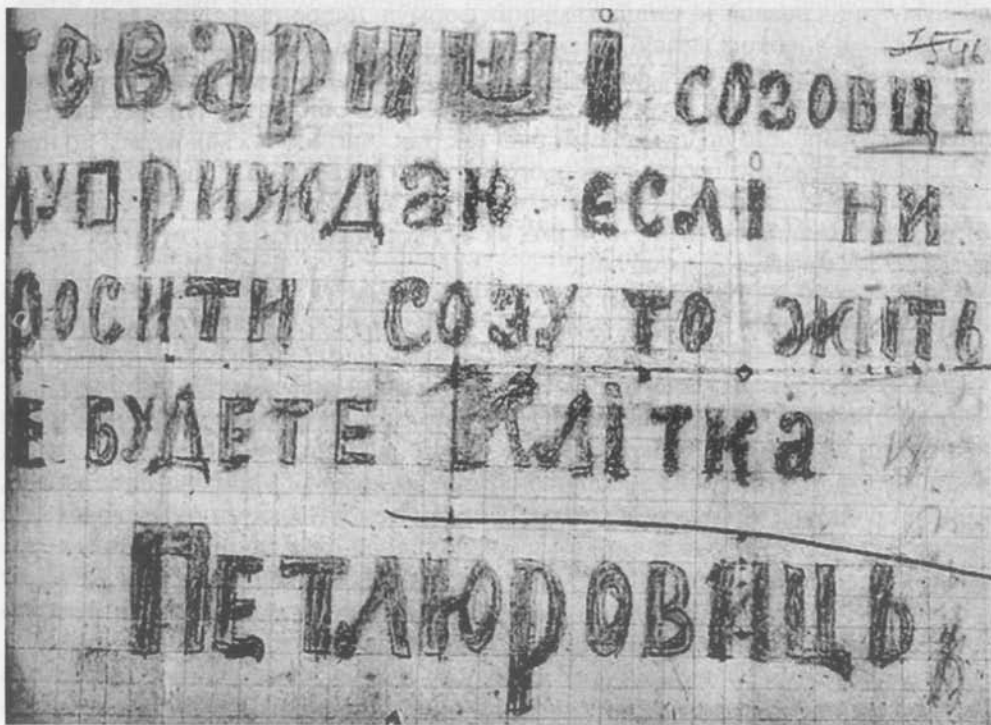 товариші созовці
дуприждаю єслі ни
росити созу то жить
е будете Клітка
Петлюровиць